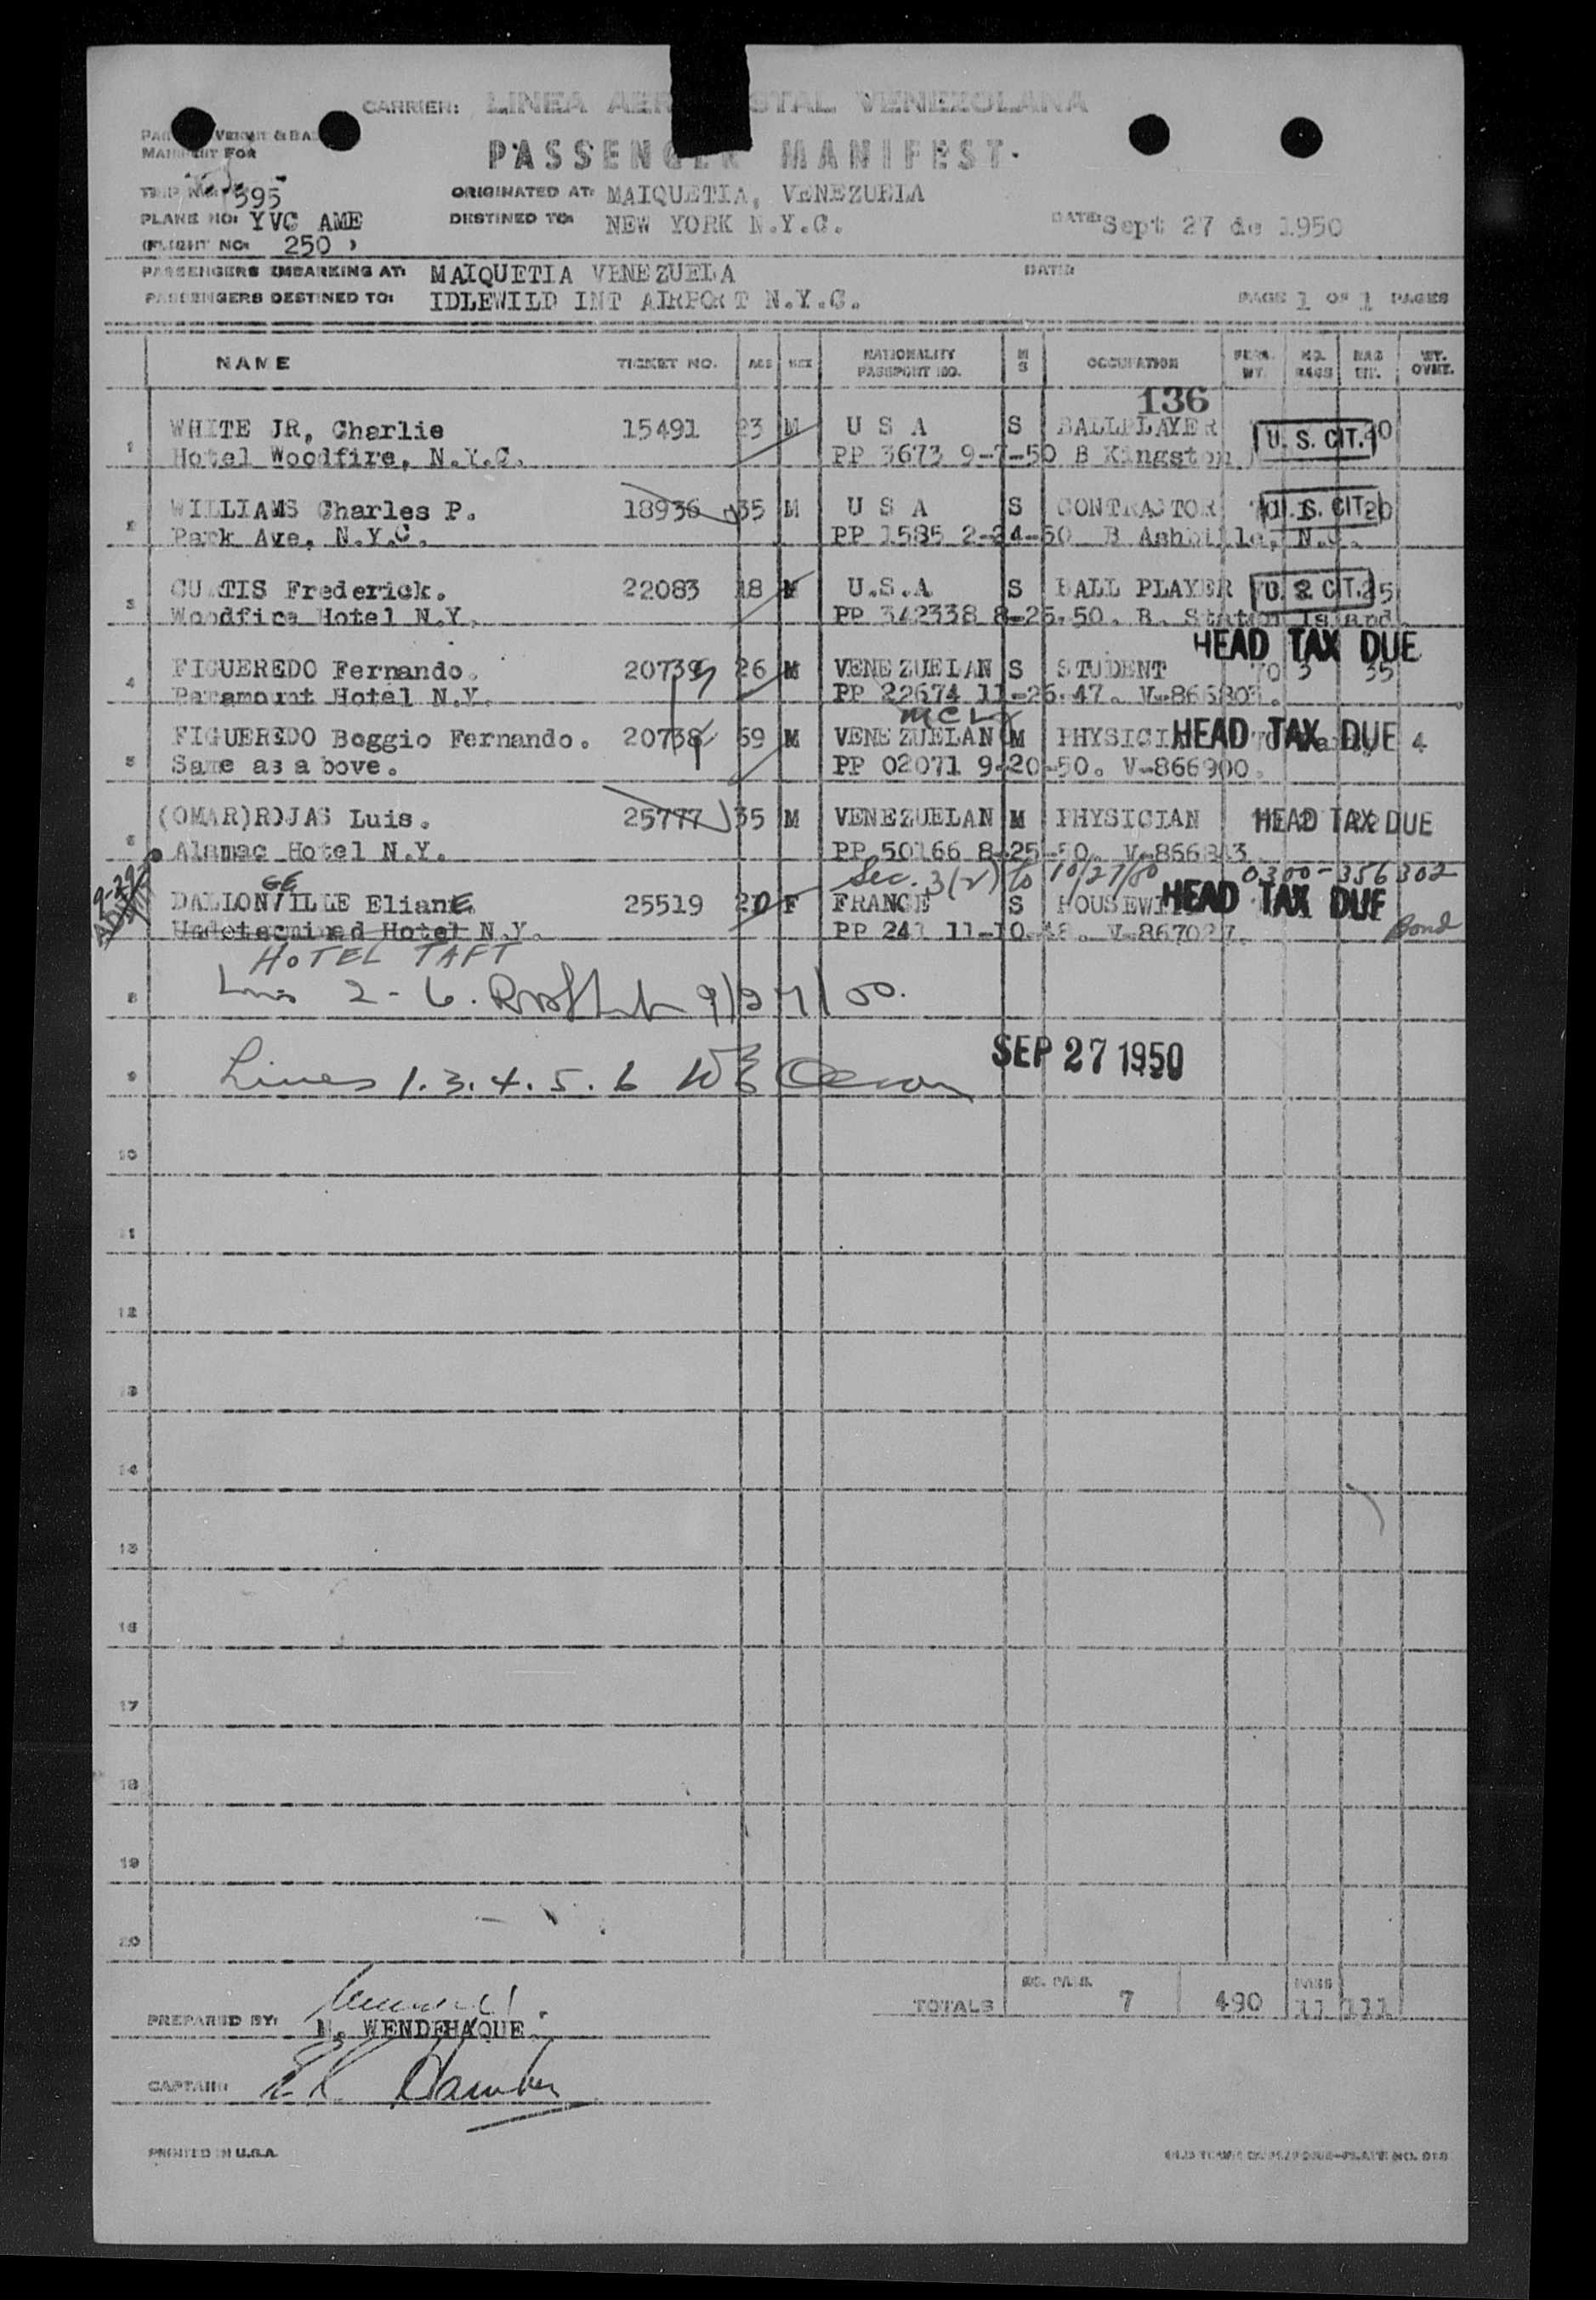 CARRIER: LINEA AER STAL VENEZOLANA
PASSENGER MANIFEST.
MANIFEST FOR
TRIP NO. 595
ORIGINATED AT: MAIQUETIA, VENEZUELA
PLANE NO: YVC AME
DESTINED TO: NEW YORK N.Y.C.
DATE: Sept 27 de 1950
(FLIGHT NO: 250 )
PASSENGERS EMBARKING AT: MAIQUETIA VENEZUELA DATE:
PASSENGERS DESTINED TO: IDLEWILD INT AIRPORT N.Y.C. PAGE 1 OF 1 PAGES
NAME TICKET NO. AGE SEX NATIONALITY PASSPORT NO. M S OCCUPATION PERS. WT. NO. BAGS BAG WT. WT. OVWT.
136
1 WHITE JR, Charlie 15491 23 M U S A S BALLPLAYER U. S. CIT.
Hotel Woodfire, N.Y.C. PP 3673 9-7-50 B Kingston
2 WILLIAMS Charles P. 18936 35 M U S A S CONTRACTOR U. S. CIT. 20
Park Ave, N.Y.C. PP 1585 2-24-50 B N.C.
3 CURTIS Frederick. 22083 18 M U.S.A S BALL PLAYER U. S. CIT. 25
Woodfire Hotel N.Y. PP 342338 8-25-50. B. Staten Island.
HEAD TAX DUE
4 FIGUEREDO Fernando. 20739 26 M VENEZUELAN S STUDENT 70 3 35
Paramount Hotel N.Y. PP 22674 11-26-47. V-866803.
5 FIGUEREDO Boggio Fernando. 20738 59 M VENEZUELAN M PHYSICI HEAD TAX DUE 4
Same as above. PP 02071 9-20-50. V-866900.
6 (OMAR)ROJAS Luis. 25777 35 M VENEZUELAN M PHYSICIAN HEAD TAX DUE
Alamac Hotel N.Y. PP 50166 8-25-50. V-866843
Sec. 3(2) to 10/27/50 0300-356302
DALLONVILLE Eliane 25519 20 F FRANCE S HOUSEWI HEAD TAX DUE
Undetermined Hotel N.Y. PP 241 11-10-48. V-867027. Bond
HOTEL TAFT
8 Lines 2-6.
SEP 27 1950
9 Lines 1.3.4.5.6
10
11
12
13
14
15
16
17
18
19
20
TOTALS NO. PASS. 7 490 11 111
PREPARED BY: WENDEHAQUE
CAPTAIN:
PRINTED IN U.S.A.